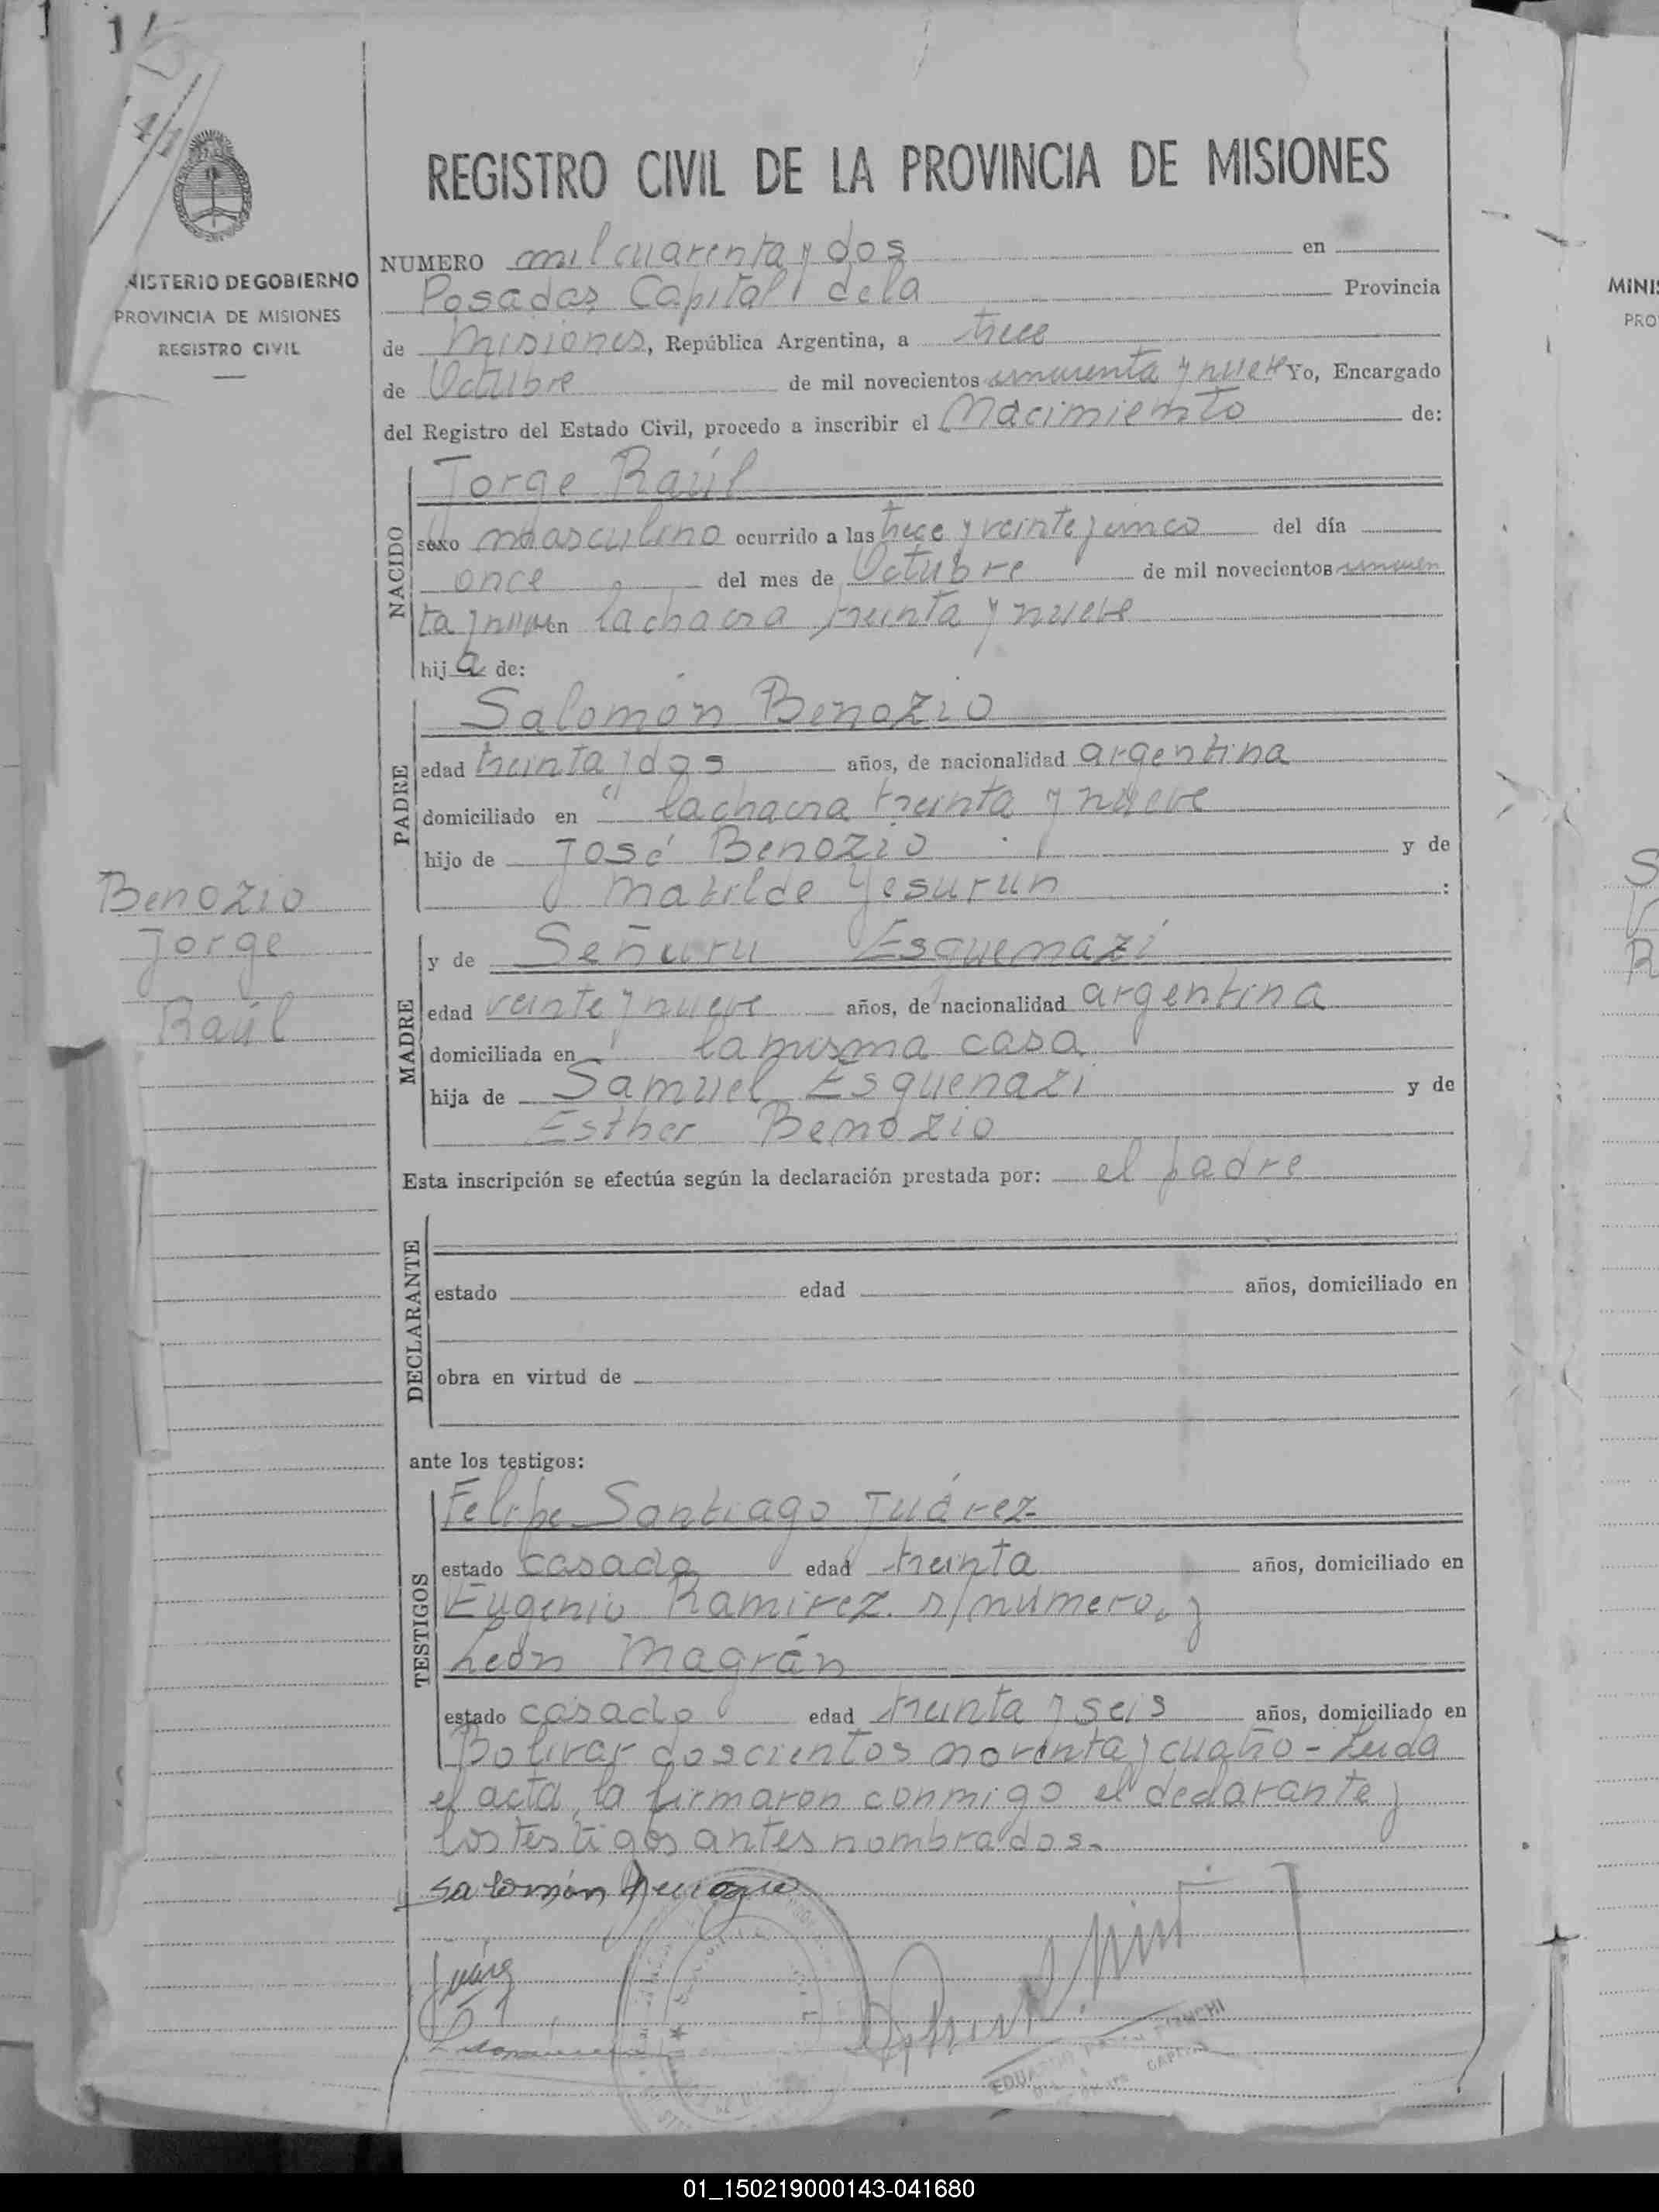 REGISTRO CIVIL DE LA PROVINCIA DE MISIONES
NISTERIO DE GOBIERNO
PROVINCIA DE MISIONES
REGISTRO CIVIL
NUMERO mil cuarenta y dos en
Posadas, Capital de la Provincia
de Misiones, República Argentina, a trece
de Octubre de mil novecientos cincuenta y nueve Yo, Encargado
del Registro del Estado Civil, procedo a inscribir el Nacimiento de:
NACIDO
Jorge Raúl
sexo masculino ocurrido a las trece y veinte y cinco del día
once del mes de Octubre de mil novecientos cincuen
ta y nueve en la chacra treinta y nueve
hij a de:
PADRE
Salomón Benozio
edad treinta y dos años, de nacionalidad argentina
domiciliado en la chacra treinta y nueve
hijo de José Benozio y de
Matilde Yesurun :
Benozio
Jorge
Raúl
MADRE
y de Señuru Esquenazi
edad veinte y nueve años, de nacionalidad argentina
domiciliada en la misma casa
hija de Samuel Esquenazi y de
Esther Benozio
Esta inscripción se efectúa según la declaración prestada por: el padre
DECLARANTE
estado edad años, domiciliado en
obra en virtud de
ante los testigos:
TESTIGOS
Felipe Santiago Juárez
estado casado edad treinta años, domiciliado en
Eugenio Ramirez s/número, y
León Magrán
estado casado edad treinta y seis años, domiciliado en
Bolivar doscientos noventa y cuatro - Leida
el acta, la firmaron conmigo el declarante y
los testigos antes nombrados.
Salomón Benozio
Juárez
CAPITAL
MINIS
PRO
01_150219000143-041680